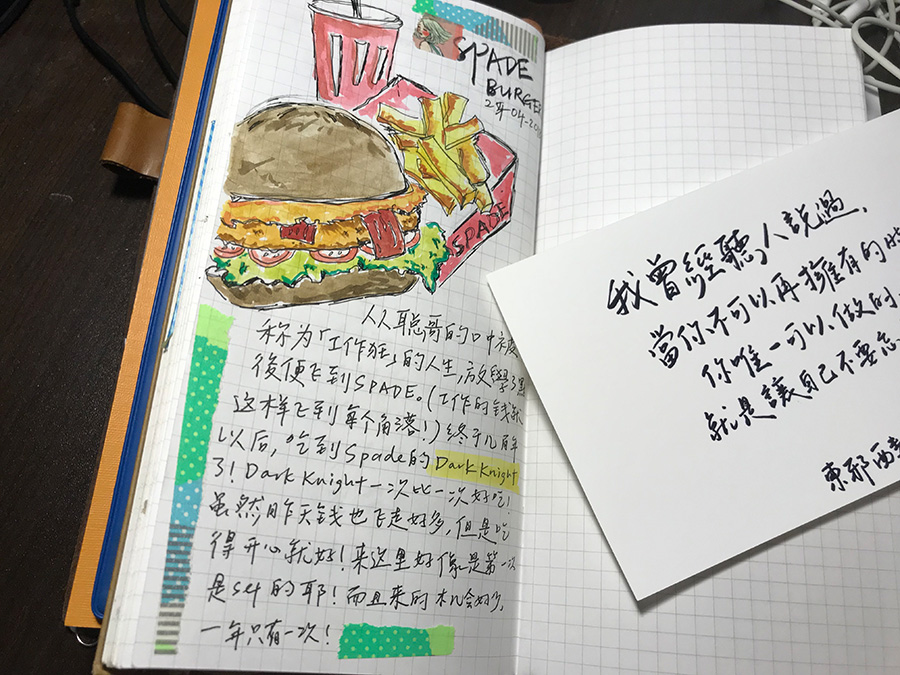 SPADE
BURGER
SPADE
从聪哥的口中被
称为「工作狂」的人生,放學
後便飞到SPADE。(工作的钱就
这样飞到每个角落!)终于几百年
以后,吃到Spade的Dark Knight
了!Dark Knight一次比一次好吃!
虽然昨天钱也飞走好多,但是吃
得开心就好!来这里好像是第一次
是Set的耶!而且来的机会好少,
一年只有一次!
我曾經聽人說過,
當你不可以再擁有的時
你唯一可以做的
就是讓自己不要忘
東邪西